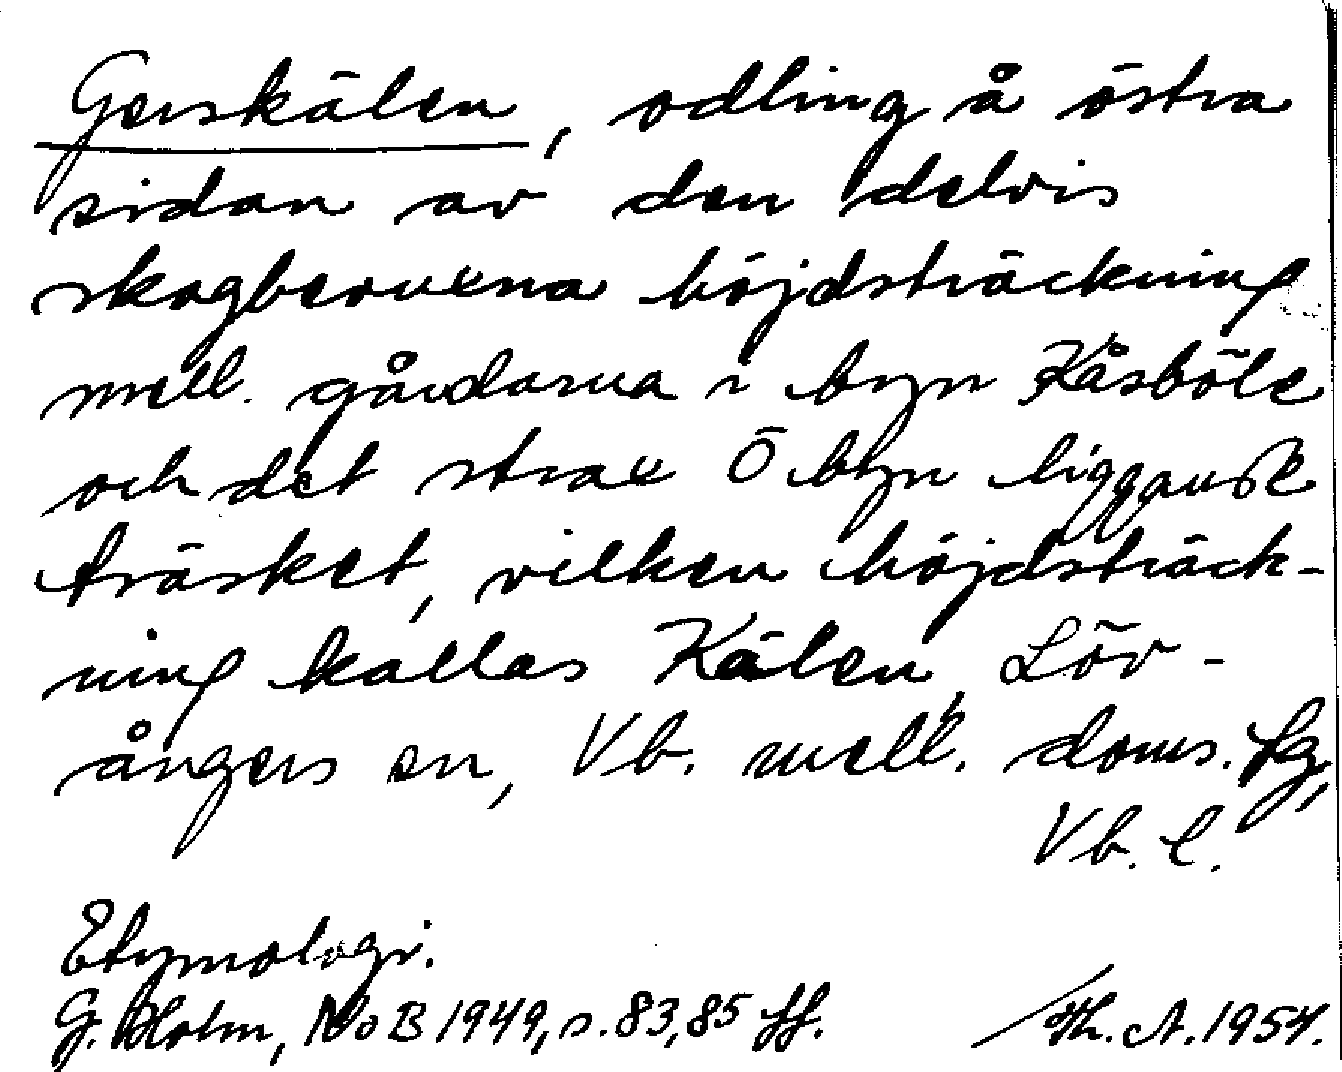 Gerskälen, odling å östra
sidan av den delvis
skogbevuxna höjdsträckning
mell. gårdarna i byn Kåsböle
och det strax Ö byn liggande
träsket, vilken höjdsträck-
ning kallas Kälen, Löv-
ångers sn, Vb. mell. doms. fg,
Vb. l.
Etymologi.
G. Holm, NoB 1949, s. 83, 85 ff.
Th. A. 1954.